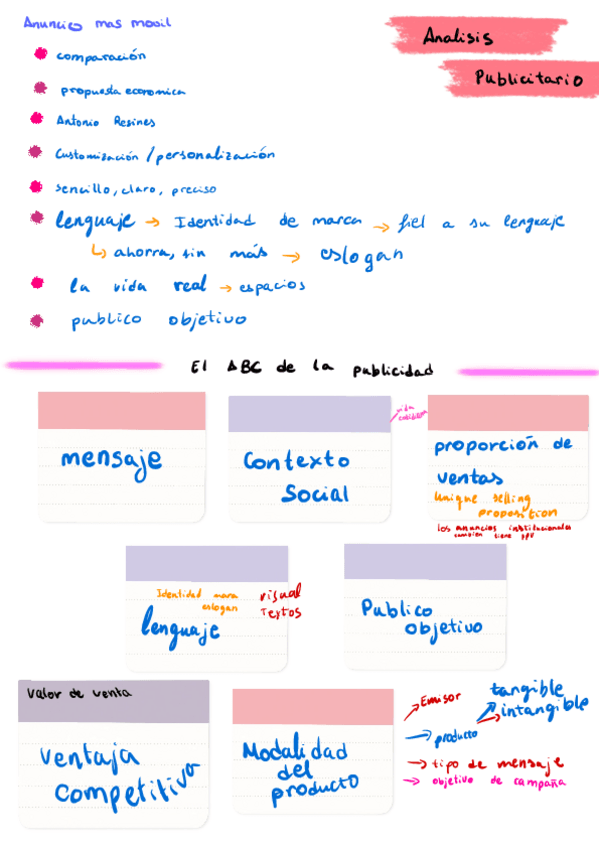 Anuncios mas movil
Analisis
Publicitario
comparación
propuesta economica
Antonio Resines
Customización / personalización
sencillo, claro, preciso
lenguaje → Identidad de marca → fiel a su lenguaje
↳ ahorra, sin más → eslogan
la vida real → espacios
publico objetivo
El ABC de la publicidad
mensaje
Contexto
Social
vida
cotidiana
proporción de
ventas
Unique selling
proposition
los anuncios institucionales
tambien tiene
Identidad marca
eslogan
visual
Textos
lenguaje
Publico
objetivo
Valor de venta
ventaja
competitiva
Modalidad
del
producto
→ Emisor
→ producto
tangible
→ intangible
→ tipo de mensaje
→ objetivo de campaña